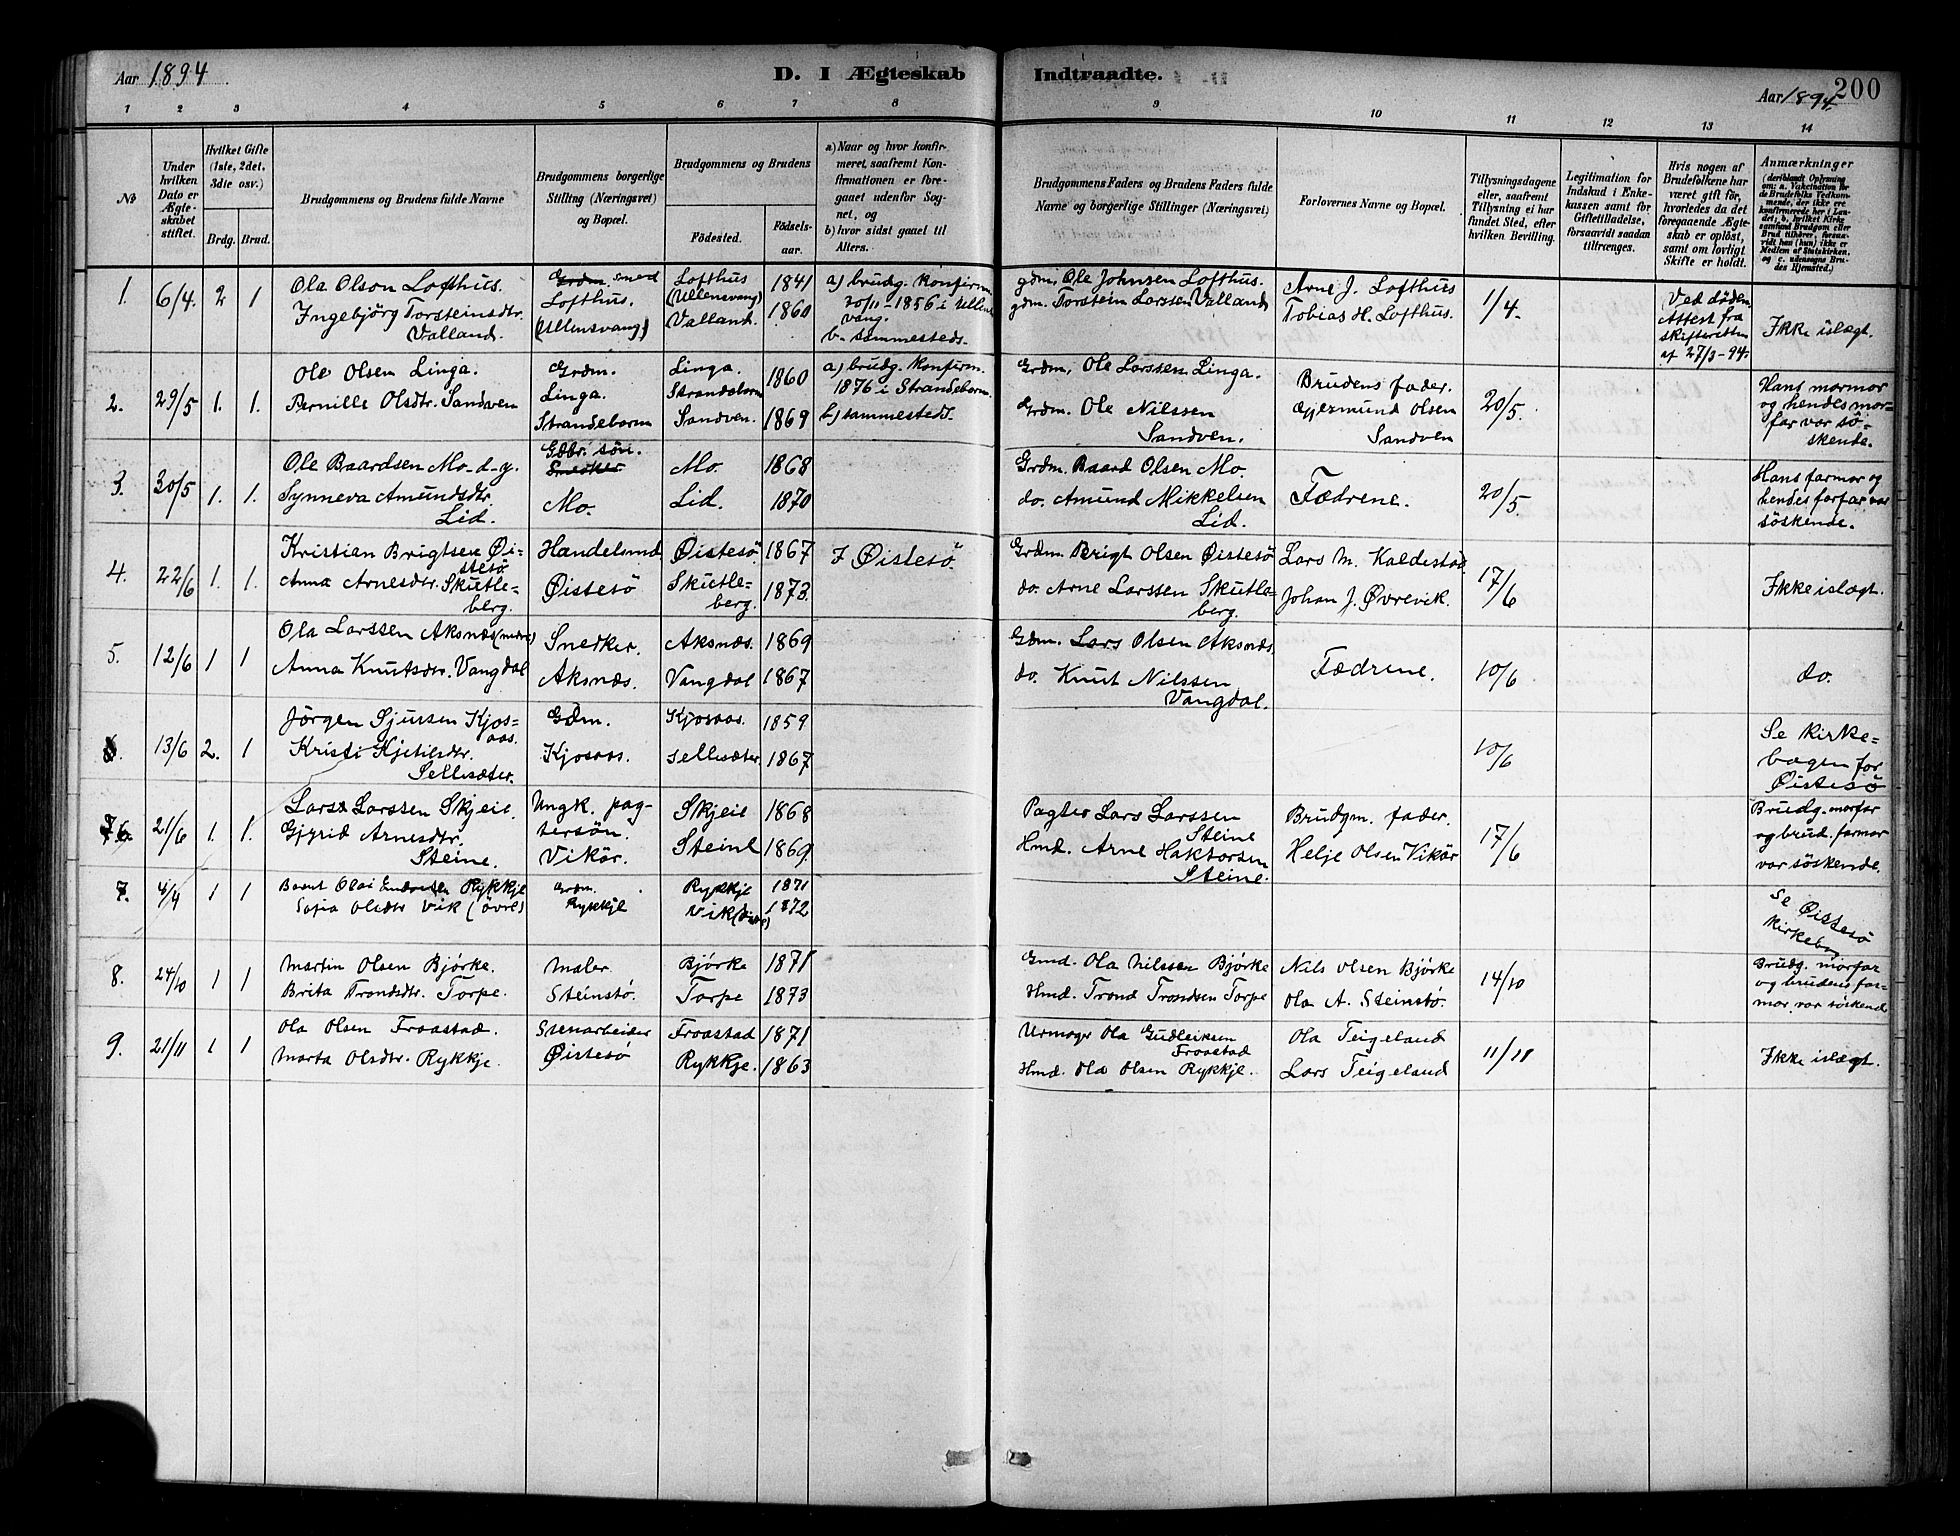 Aar 1894
D. I Ægteskab Indtraadte.
Aar 1894.
200
1 2 3 4 5 6 7 8 9 10 11 12 13 14
No
Under hvilken Dato er Ægteskabet stiftet.
Hvilket Gifte (1ste, 2det, 3die osv.)
Brdg. Brud.
Brudgommens og Brudens fulde Navne
Brudgommens borgerlige Stilling (Næringsvei) og Bopæl.
Brudgommens og Brudens
Födested.
Födselsaar.
a) Naar og hvor konfirmeret, saafremt Konfirmationen er foregaaet udenfor Sognet, og
b) hvor sidst gaaet til Alters.
Brudgommens Faders og Brudens Faders fulde Navne og borgerlige Stillinger (Næringsvei)
Forlovernes Navne og Bopæl.
Tillysningsdagene eller, saafremt Tillysning ei har fundet Sted, efter hvilken Bevilling.
Legitimation for Indskud i Enkekassen samt for Giftetilladelse, forsaavidt saadan tiltrænges.
Hvis nogen af Brudefolkene har været gift för, hvorledes da det foregaaende Ægteskab er oplöst, samt om lovligt Skifte er holdt.
Anmærkninger (deriblandt Oplysning om: a. Vakcination for de Brudefolks Vedkommende, der ikke ere konfirmerede her i Landet; b. hvilket Kirkesamfund Brudgom eller Brud tilhörer, forsaavidt han (hun) ikke er Medlem af Statskirken, og c. udensogns Brudes Hjemsted.)
1. 6/4. 2 1 Ola Olson Lofthus. Grdm. smed Lofthus 1841 a) brudg. konfirm. gdm. Ole Johnsen Lofthus. Arne J. Lofthus 1/4. Ved döden
Ingebjörg Torsteinsdtr. Lofthus. (Ullensvang) 1860 20/11-1856 i Ullens gdm. Torstein Larssen Valland Tobias H. Lofthus. Attest fra Ikke islægt.
Valland. (Ullensvang) Valland. vang. skifteretten
b. sammesteds. af 27/3-94.
2. 29/5 1. 1. Ole Olsen Linga. Grdm. Linga. 1860 a) brudg. konfirm. Grdm. Ole Larssen Linga. Brudens fader. 20/5. Hans mormor
Pernille Olsdtr. Sandven Linga. Strandebarm 1876 i Strandebarm. Gjermund Olsen og hendes mor-
Strandebarm Sandven. 1869 b) sammesteds. Grdm. Ole Nilssen Sandven far var sö-
Sandven. skende.
3. 30/5 1. 1. Ole Baardsen Mo-d-y. Gdbr. sön. Mo. 1868 Grdm. Baard Olsen Mo. Fædrene. 20/5. Hans farmor og
Synneva Amundsdtr. Snedker Lid. 1870 do. Amund Mikkelsen hendes farfar var
Lid. Mo. Lid. söskende.
4. 22/6 1. 1. Kristian Brigtsen Øi- Handelsmd Øistesö 1867 I Øistesö. Grdm. Brigt Olsen Øistesö Lars M. Kaldestad 17/6
stesö
Anna Arnesdtr. Skutle- Øistesö Skutle- 1873. do. Arne Larssen Skutle- Johan J. Øvrevik. Ikke islægt.
berg. berg. berg.
5. 12/6 1 1 Ola Larssen Aksnæs (nedre) Snedker. Aksnæs. 1869 Gdm. Lars Olsen Aksnæs. Fædrene. 10/6 do.
Anna Knutsdtr. Vangdal Aksnæs. Vangdal 1867 do. Knut Nilssen
Vangdal.
6 13/6 2. 1 Jörgen Sjursen Kjos- Gdm. Kjosaas. 1859 10/6 Se kirke-
aas. bogen for
Kristi Kjetilsdtr. Kjosaas. Sellesæter. 1867 Øistesö
Sellesæter.
21/6 1. 1. Lars Larssen Skjeie. Ungk. pag- Skjeie 1868 Pagter Lars Larssen Brudgm. fader. 17/6 Brudg. morfar
Gjyrid Arnesdtr. tersön. Steine 1869 Steine Helje Olsen Vikör og brud. farmor
Steine. Vikör. Hmd. Arne Haktorsen var söskende.
Steine.
7. 4/4 1 1 Olai Endresen Rykkje Grdm. Rykkje 1871 Se Øistesö
Sofia Olsdtr Vik (övre) Rykkje Vik 1872 kirkebog
8. 24/10 1 1 Martin Olsen Bjørke. Maler. Bjørke 1871 Gmd. Ola Nilssen Bjørke Nils Olsen Bjørke 14/10 Brudg. morfar
Brita Trondsdtr. Torpe. Steinstø. Torpe 1873 Hmd. Trond Trondsen Torpe Ola A. Steinstø. og brudens far-
mor var söskend
9. 21/11 1 1 Ola Olsen Fraastad. Stenarbeider Fraastad 1871 Urmager Ola Gudleiksen Ola Teigeland 11/11 Ikke islægt.
Fraastad
Marta Olsdtr. Rykkje. Øistesø Rykkje. 1863 Hmd. Ola Olsen Rykkje. Lars Teigeland